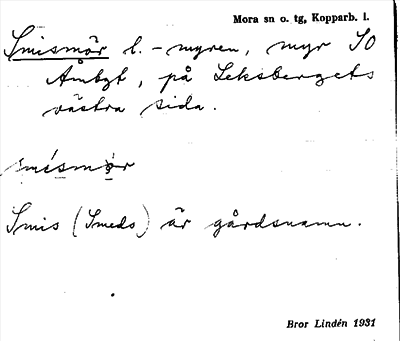 Mora sn o. tg, Kopparb. l.
Smismör l. -myren, myr SO
Åmbgt, på Leksbergets
västra sida.
smismør
Smis (Smeds) är gårdsnamn.
Bror Lindén 1931